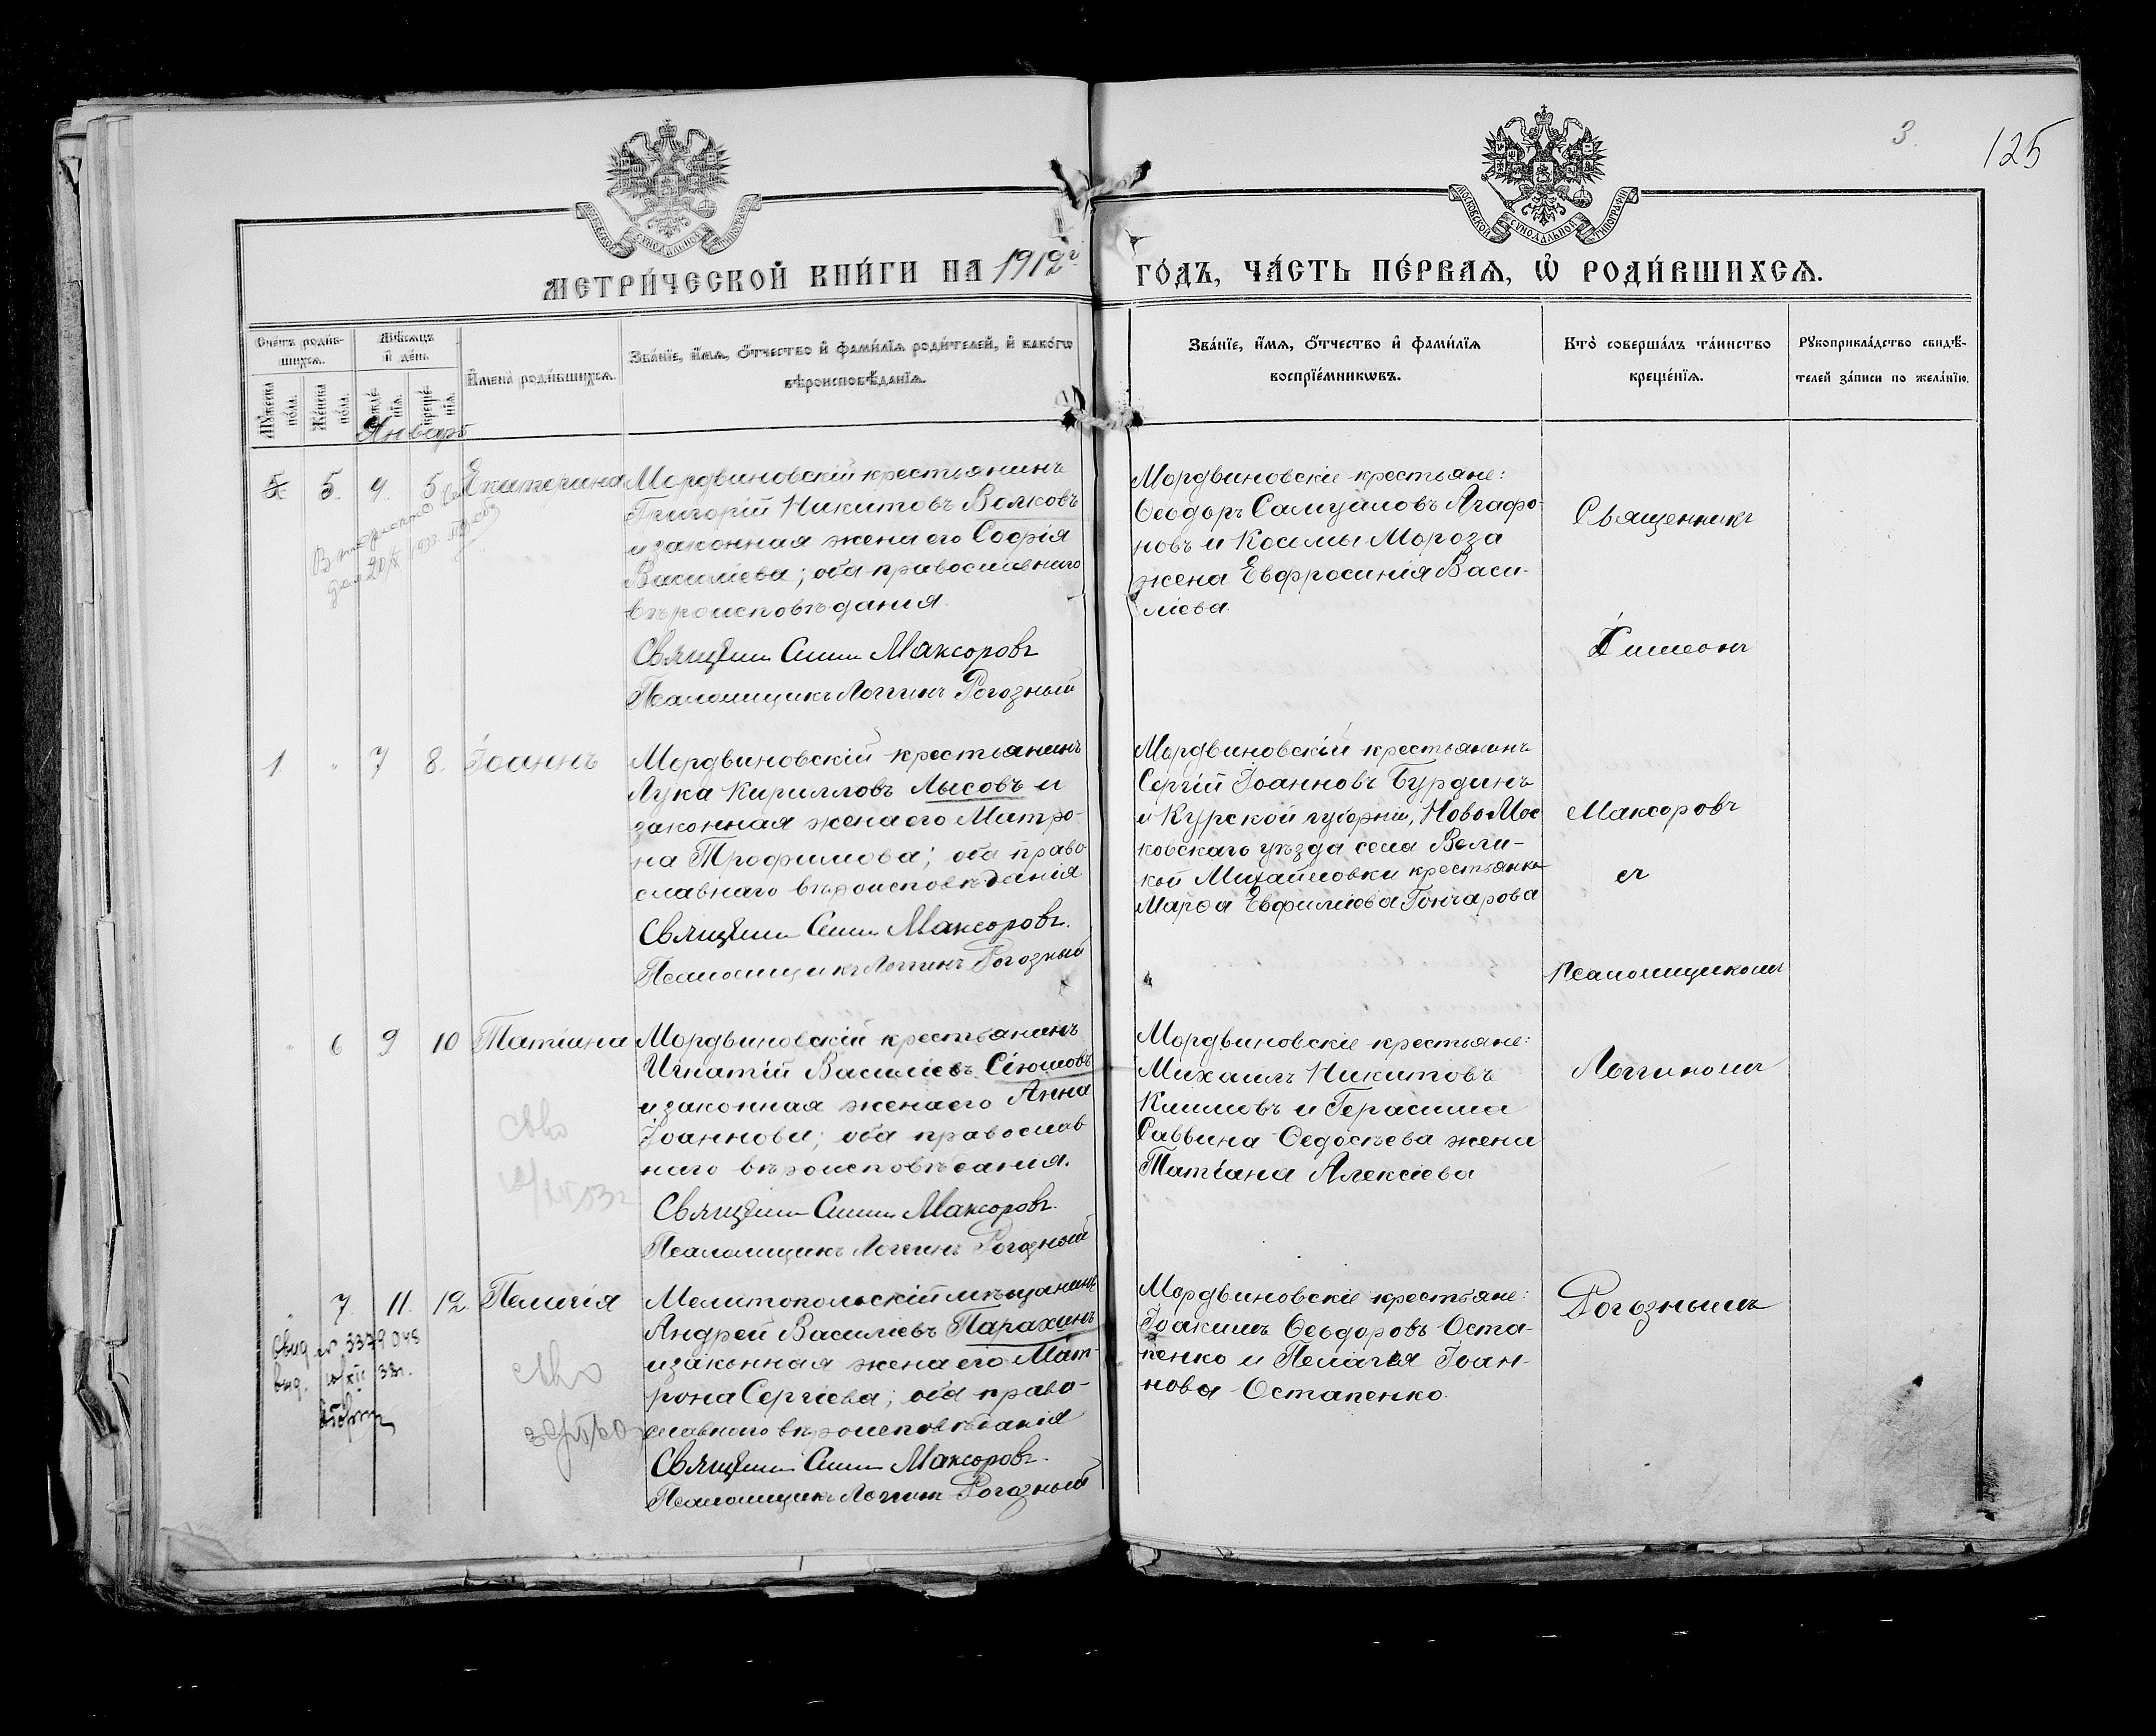 3.
125
МОСКОВСКОЙ СѴНОДАЛЬНОЙ ТИПОГРАФІИ
МЕТРИ́ЧЕСКОЙ КНИ́ГИ НА 1912 г ГО́ДЪ, ЧА́СТЬ ПЕ́РВАЯ, Ѽ РОДИ́ВШИХСЯ.
Сче́тъ роди́в-
шихся.
Мѣ́сяцъ
и҆ де́нь
Мꙋ́жеска
по́ла.
Же́нска
по́ла.
рожде́-
нїя.
креще́-
нїя.
И҆мена̀ роди́вшихся.
Зва́нїе, и҆́мя, ѻ҆́тчество и҆ фами́лїя роди́телей, и҆ како́гѡ
вѣроисповѣ́данїя.
Зва́нїе, и҆́мя, ѻ҆́тчество и҆ фами́лїя
воспрїе́мникѡвъ.
Кто̀ соверша́лъ та́инство
креще́нїя.
Рꙋкоприкла́дство свидѣ́-
телей за́писи по жела́нїю.
Январь
5. 5. 4. 5 Екатерина
Мордвиновскій крестьянинъ
Григорій Никитовъ Волковъ
и законная жена его Софія
Василіева; оба православнаго
вѣроисповѣданія.
Священн Симе Максоровъ
Псаломщикъ Логгинъ Рогозный
Мордвиновскіе крестьяне:
Ѳеодоръ Самуиловъ Агафо-
новъ и Косьмы Мороза
жена Евфросинія Васи-
ліева.
Священникъ
Симеонъ
1. " 7 8. Іоаннъ
Мордвиновскій крестьянинъ
Лука Кирилловъ Лысовъ и
законная жена его Матро-
на Трофимова; оба право
славнаго вѣроисповѣданія
Священн Симе Максоровъ.
Псаломщикъ Логгинъ Рогозный
Мордвиновскій крестьянинъ
Сергій Іоанновъ Бурдинъ
и Курской губерніи, Ново Мос
ковскаго уѣзда села Вели-
кой Михайловки крестьянка
Марѳа Евфиміова Гончарова
Максоровъ
съ
псаломщикомъ
" 6 9 10 Татіана
Мордвиновскій крестьянинъ
Игнатій Василіевъ Сіюшовъ
и законная жена его Анна
Іоаннова; оба православ
наго вѣроисповѣданія.
Священн Симе Максоровъ.
Псаломщикъ Логгинъ Рогозный
Мордвиновскіе крестьяне:
Михаилъ Никитовъ
Климовъ и Герасима
Саввина Ѳедосѣева жена
Татіана Алексіева
Логгиномъ
" 7. 11. 12. Пелагія
Свид № 3379048
выд. 10/XII 33 г.
Мелитопольскій мѣщанинъ
Андрей Василіевъ Парахинъ
и законная жена его Мат-
рона Сергіева; оба право-
славнаго вѣроисповѣданія
Священн Симе Максоровъ.
Псаломщикъ Логгинъ Рогозный
Мордвиновскіе крестьяне:
Іоакимъ Ѳеодоровъ Оста-
пенко и Пелагея Іоан-
нова Остапенко.
Рогознымъ